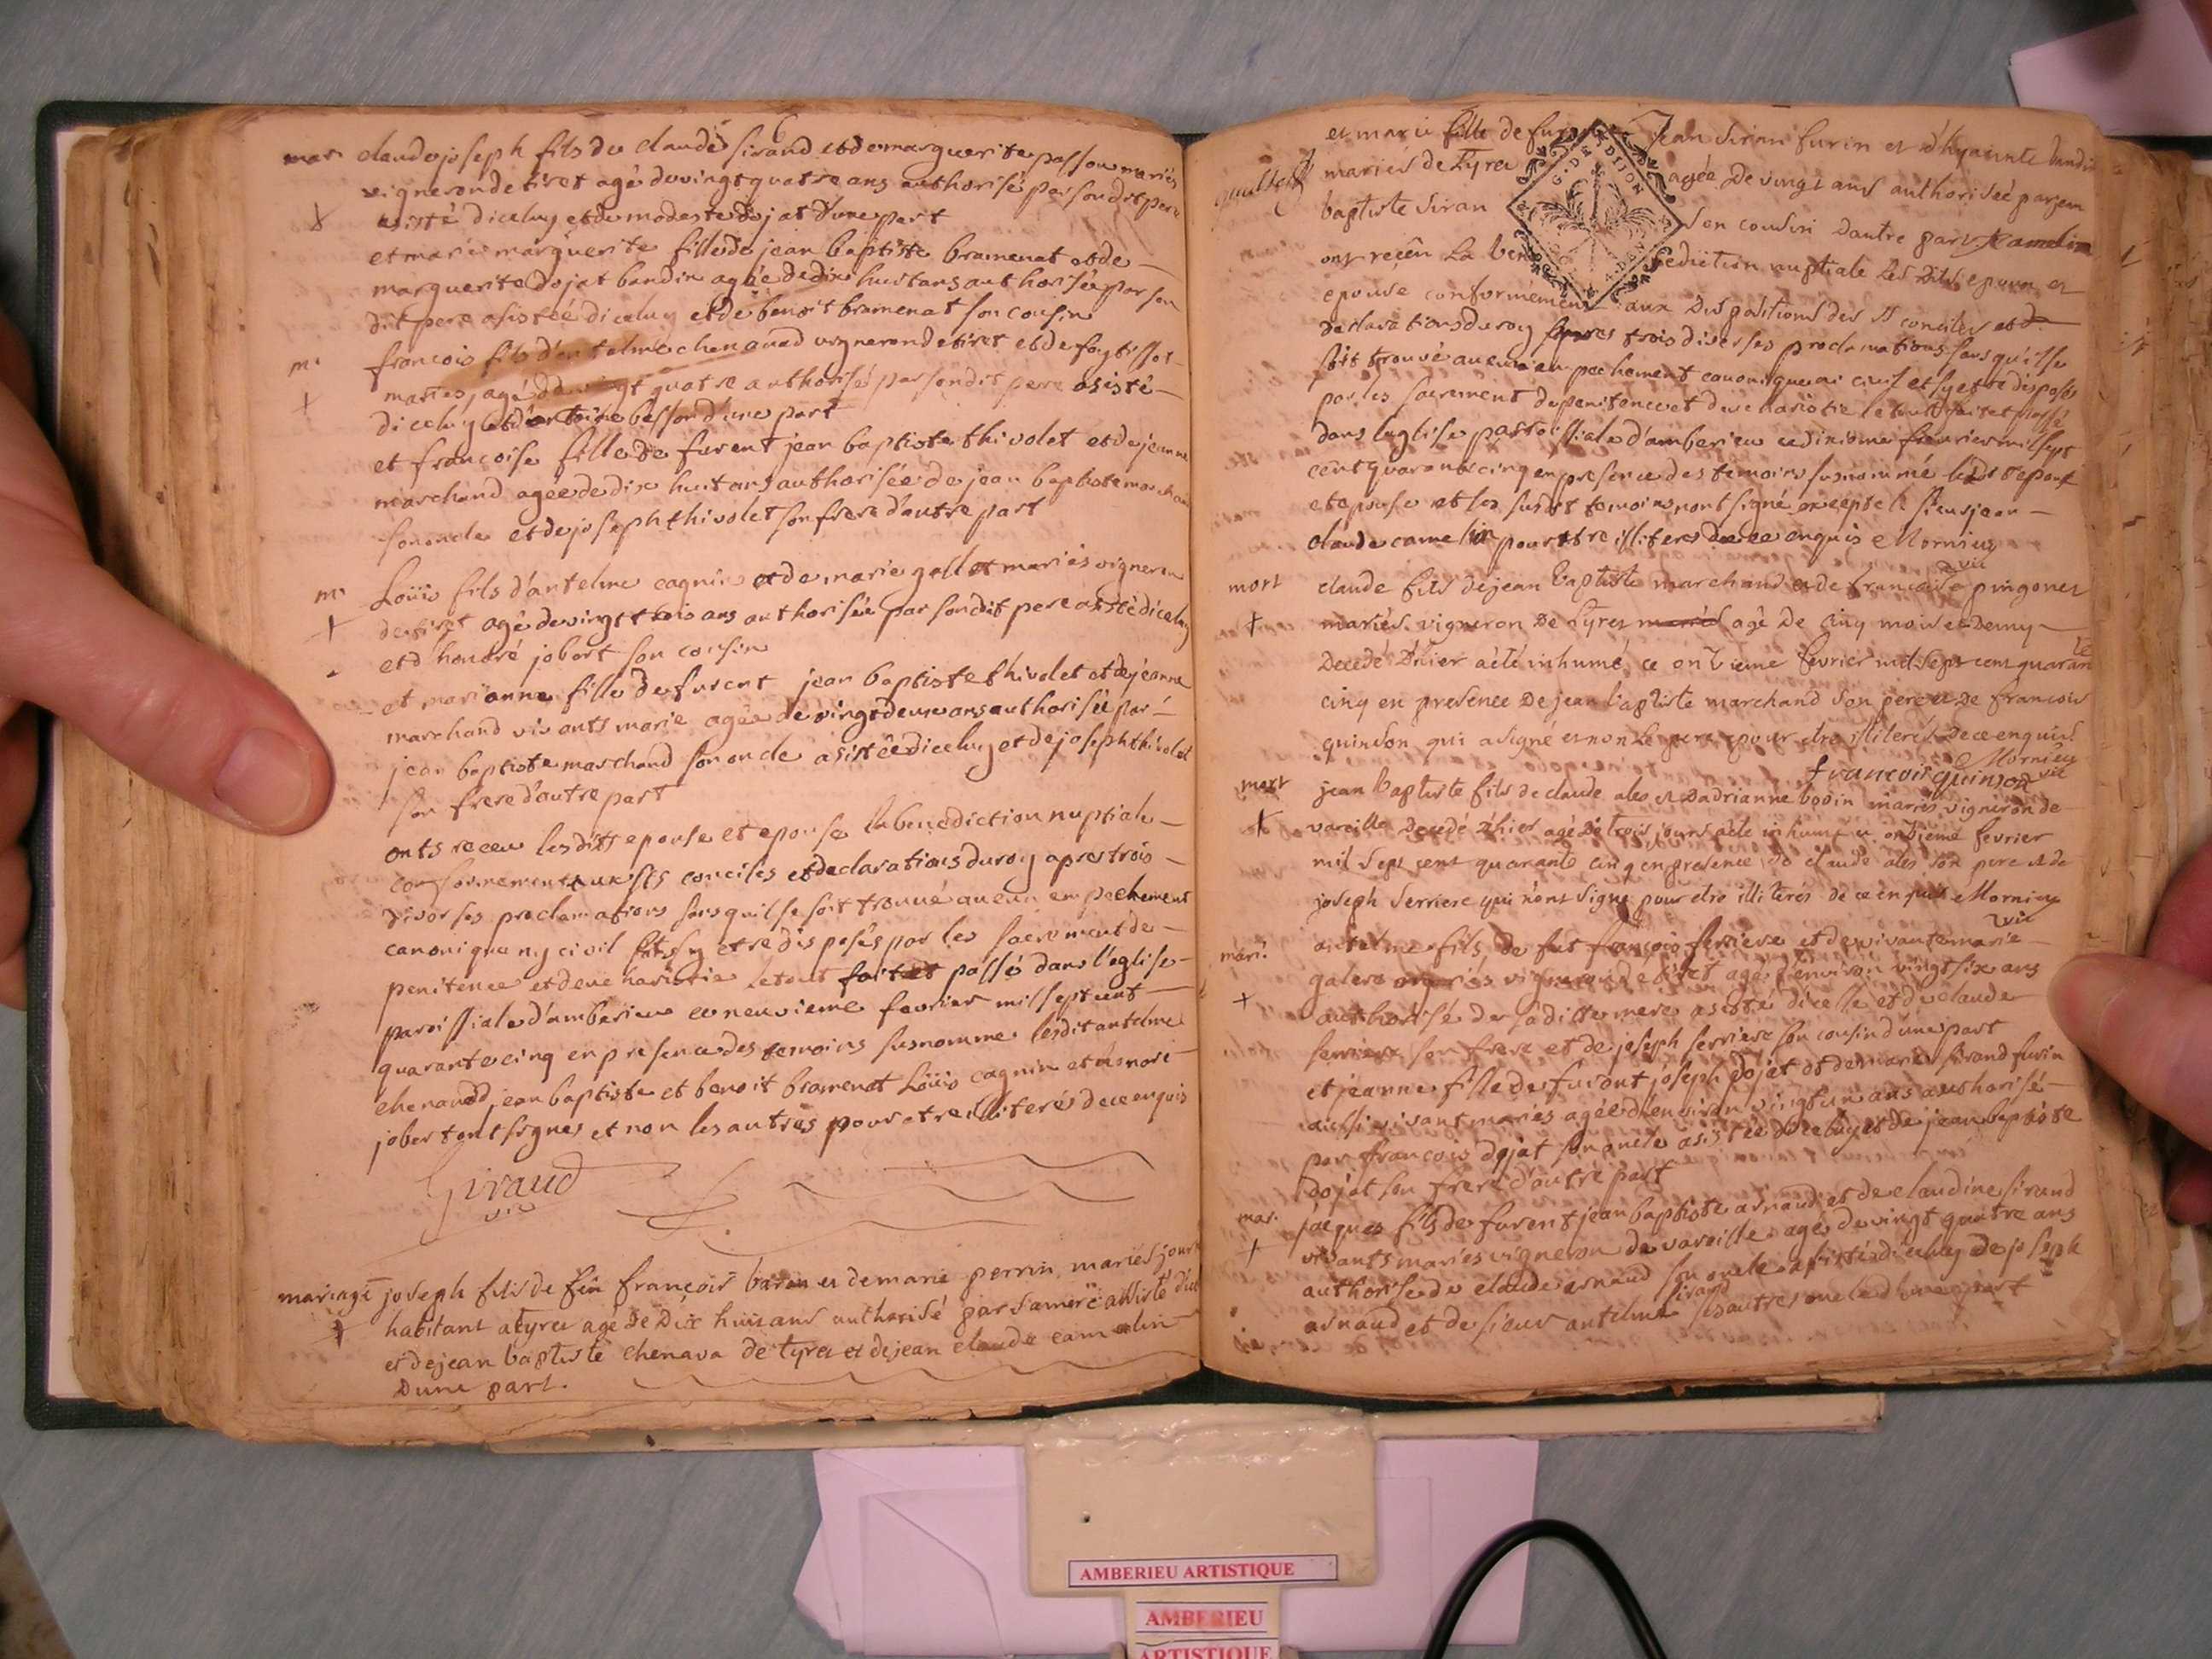 6
mar. claude joseph fils de claude sirand et de marguerite passou mariés
vigneron de tiret agé de vingt quatre ans authorisé par son dit pere
asisté diceluy et de modeste dojat d'une part
et marie marguerite fille de jean baptiste bramenat et de
marguerite dojat bandin agée de dix huit ans authorisée par son
dit pere asistée diceluy et de benoit bramenat son cousin
m. francois fils d'antelme chenavad vigneron de tiret et de
maries, agé de vingt quatre authorisé par son dit pere asisté
diceluy et d'antoine besson d'une part
et francoise fille de furent jean baptiste thivolet et de jeanne
marchand agée de dix huit ans authorisée de jean baptiste marchand
son oncle et de joseph thivolet son frere d'autre part
m. Loüis fils d'antelme cagnin et de marie gallet mariés vigneron
de tiret agé de vingt trois ans authorisée par son dit pere asisté diceluy
et d'honoré jobert son cousin
et marianne fille de furent jean baptiste thivolet et de jeanne
marchand vivants marie agée de vingt deux ans authorisée par
jean baptiste marchand son oncle asistée diceluy et de joseph thivolet
son frere d'autre part
onts receu lesdits epouse et epouse la benediction nuptiale
conformement aux sts conciles et declarations du roy apres trois
diverses proclamations sans quil se soit trouvé aucun empechement
canonique ny civil et sy etre disposés par les sacrement de
penitence et deucharistie le tout fait et passé dans l'eglise
paroissiale d'amberieu ce neuvieme fevrier mil sept cent
quarante cinq en presence des temoins susnomme lesdit antelme
chenavad jean baptiste et benoit bramenat Loüis cagnin et honoré
jobert ont signes et non les autres pour etre illiterés de ce enquis
Giraud
vic
mariage joseph fils de feu francois baron et de marie perrin mariés
habitant a tyret agé de Dix huit ans authorisé par sa mere assisté
et de jean baptiste chenava de tyret et de jean claude camelin
Dune part.
et marie fille de furent jean siran furin et d'hyacinte bandin
mariés de Tyret agée de vingt ans authorisée par jean
baptiste siran son cousin dautre part Camelin
G. DE DIJON
ont reçeu la benediction nuptiale les dits epoux et
epouse conformement aux dispositions des st conciles et d
declarations du roy apres trois diverses proclamations sans qu'il se
soit trouvé aucun empechement canonique ni civil et sy etre disposés
par les sacrement de penitence et deucharistie le tout fait et passé
dans leglise paroissiale d'amberieu ce dixieme fevrier mil sept
cent quarante cinq en presence des temoins susnommé ledit epoux
et epouse et les susdit temoins nont signé excepte le sieur jean
claude camelin pour etre illiteres de ce enquis Mornieu
vic
mort claude fils de jean baptiste marchand et de francoise pingonet
mariés vigneron De Tyret agé De Cinq mois et Demy
Decedé D'hier a été inhumé ce onzieme fevrier mil sept cent quarante
cinq en presence De jean baptiste marchand son pere et De francois
quinson qui a signé et non le pere pour etre illiteré De ce enquis
Mornieu
vic
francois quinson
mort jean baptiste fils de claude ales et Dadrianne bodin mariés vigneron de
vareille Decedé D'hier agé De trois jours a été inhumé ce onzieme fevrier
mil sept cent quarante cinq en presence De claude ales son pere et de
joseph serriere qui n'ont signé pour etre illiterés de ce enquis Mornieu
vic
mari. antelme fils de fut françois serriere et de vivante marie
galere mariés vigneron de tiret agé d'environ vingt six ans
authorisé de sa ditte mere asisté dicelle et de claude
serriere son frere et de joseph serriere son cousin d'une part
et jeanne fille de furent joseph dojat et de marie sirand furin
aussi vivant mariés agée d'environ vingt un ans authorisé
par francois dojat son oncle asistée diceluy et de jean baptiste
dojat son frere d'autre part
mar. jacques fils de furent jean baptiste arnaud et de claudine sirand
vivants mariés vigneron de vareille agé de vingt quatre ans
authorise de claude arnaud son oncle asisté diceluy de joseph
arnaud et de sieur antelme sirand ses autres oncles d'une part
AMBERIEU ARTISTIQUE
AMBERIEU
ARTISTIQUE